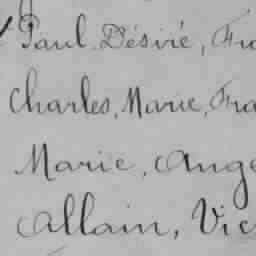 Paul, Désiré, Fra
Charles, Marie, Fra
Marie, Ange
Allain, Vic